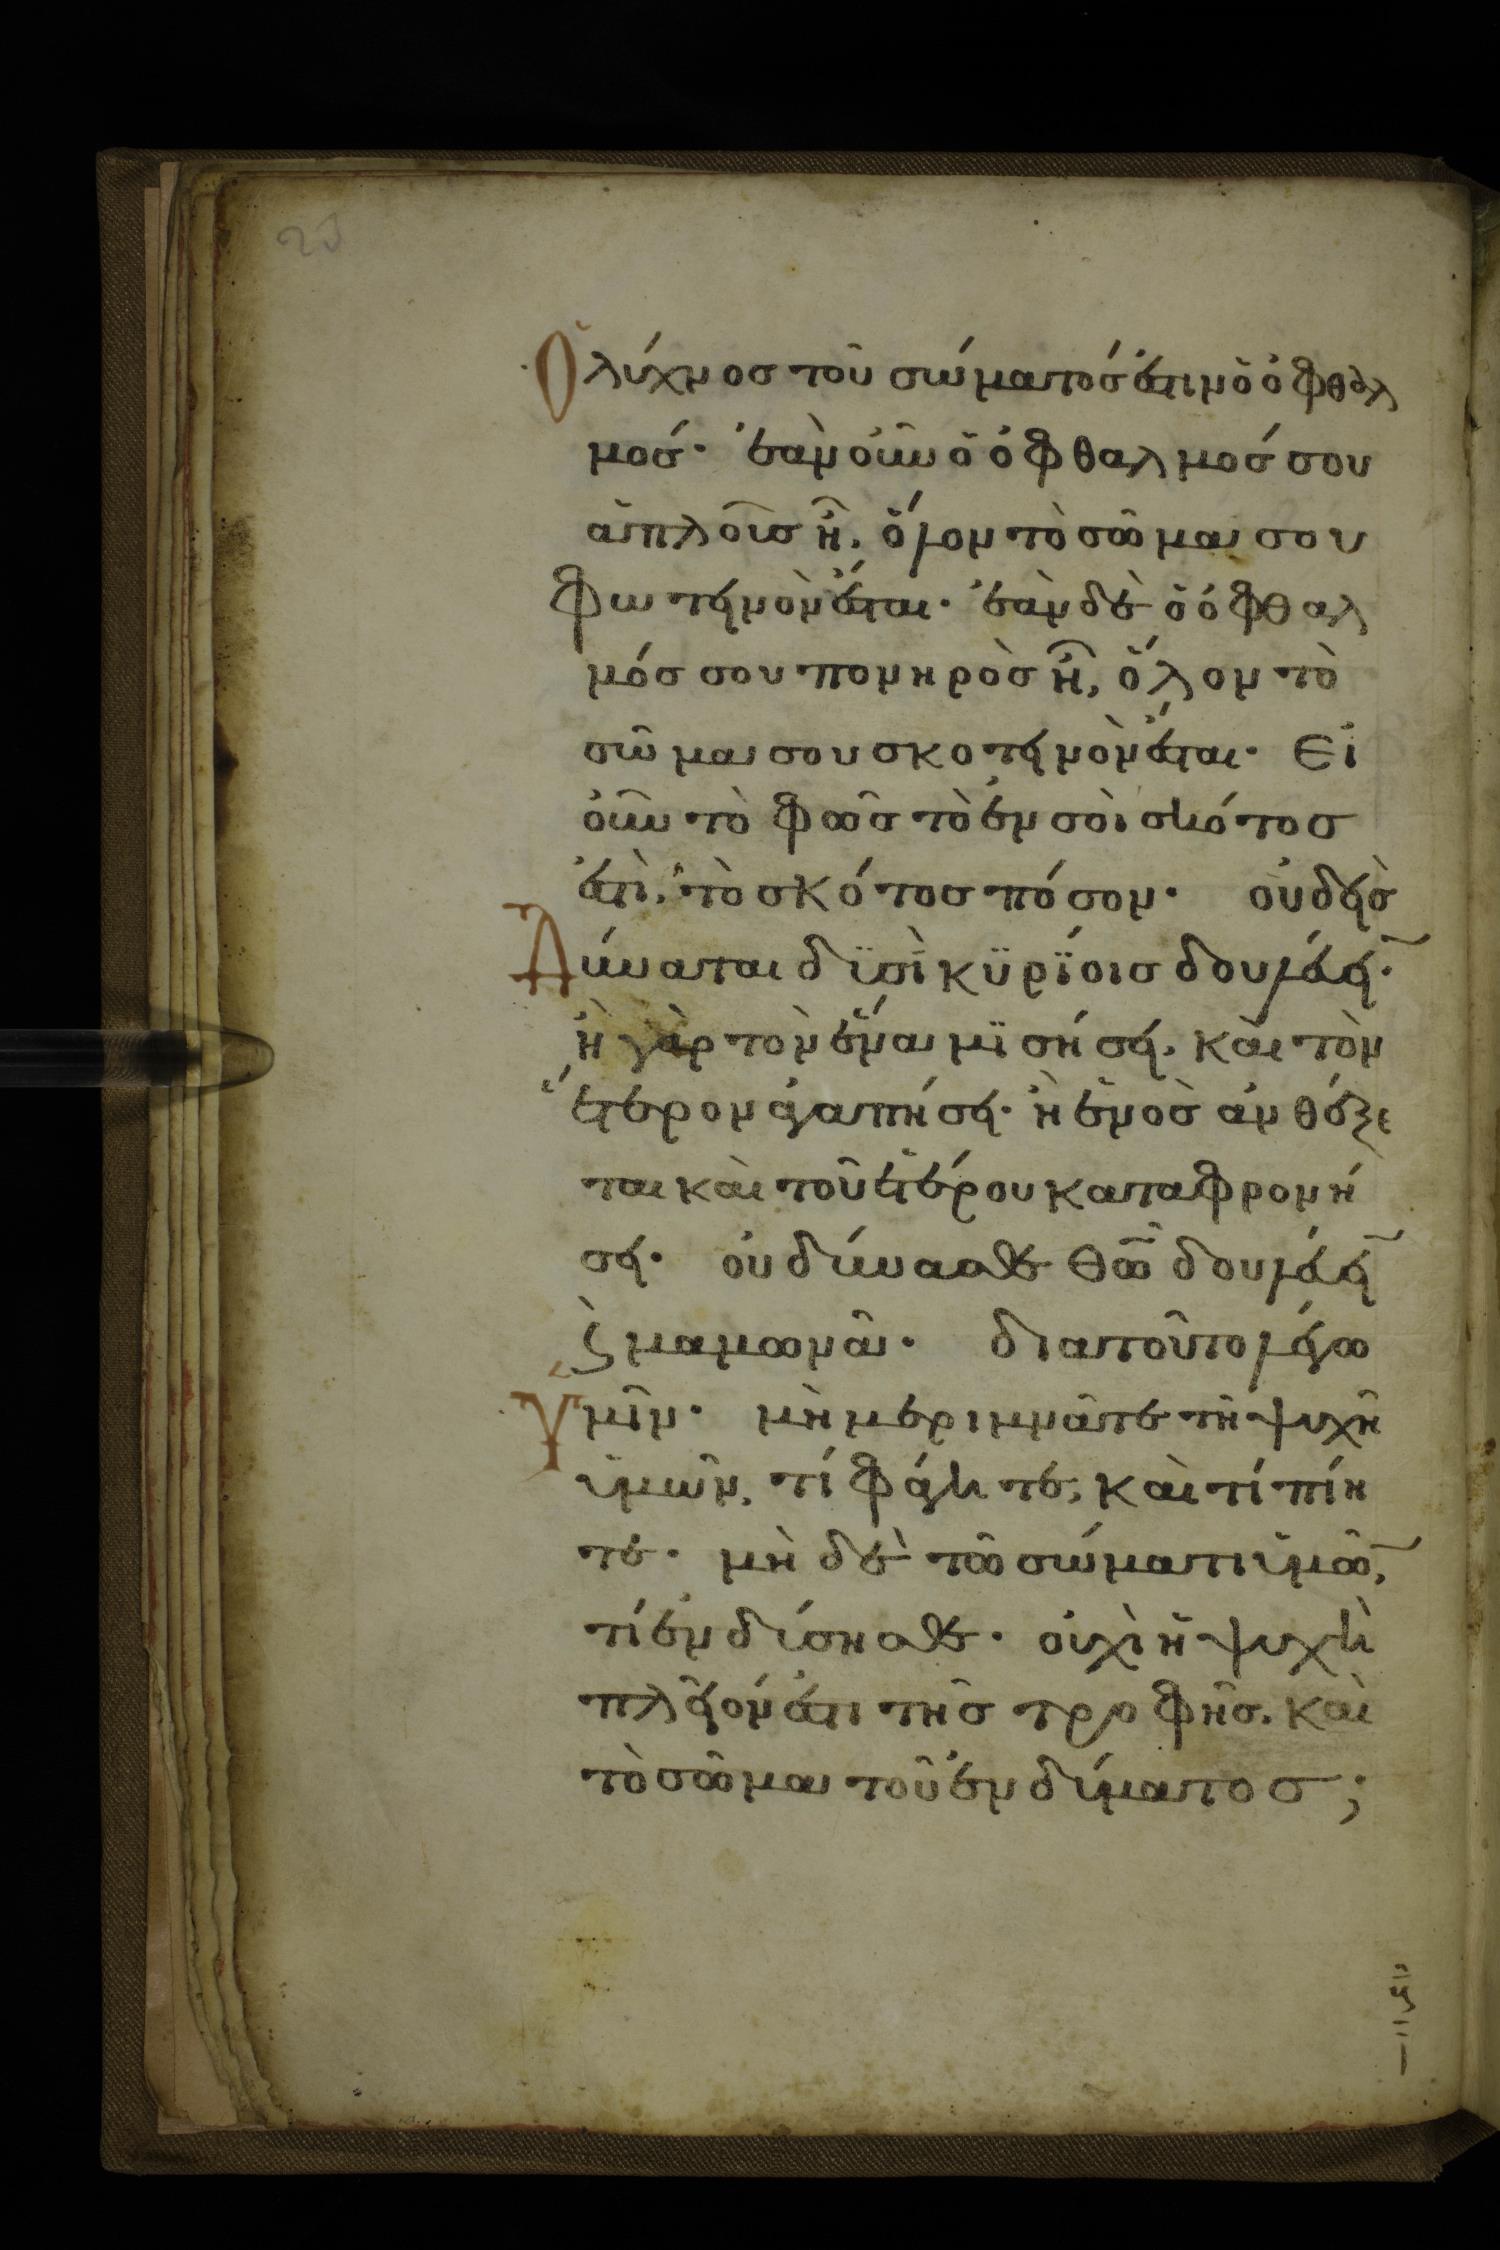 Ὁ λύχνοσ τοῦ σώματόσ ἐστιν ὁ ὀφθαλ
μοσ· ἐὰν οὖν ὁ ὀφθαλμοσ σου
ἁπλοῦσ ἦ, ὅλον τὸ σῶμα σου
φωτεινὸν ἔσται· ἐὰν δὲ ὁ ὀφθαλ
μόσ σου πονηρὸσ ἦ, ὅλον τὸ
σῶμα σου σκοτεινὸν ἔσται· Εἰ
οὖν τὸ φῶσ τὸ ἐν σοὶ σκότοσ
ἐστὶ, τὸ σκότοσ πόσον· οὐδεὶσ
Δύναται δϋσὶ κϋρΐοισ δουλεύειν·
ἢ γὰρ τὸν ἕνα μϊσήσει, καὶ τὸν
ἕτερον ἀγαπήσει· ἢ ἑνὸσ ἀνθέξε
ται καὶ τοῦ ἑτέρου καταφρονή
σει· οὐ δύνασθε θῶ δουλεύειν
ϗ μαμωνᾶ· διατοῦτο λέγω
Ὑμῖν· μὴ μεριμνᾶτε τῆ ψυχῆ
ὑμῶν, τί φάγητε, καὶ τί πίη
τε· μὴ δὲ τῶ σώματι ὑμῶν,
τί ἐνδύσησθε· οὐχὶ ἡ ψυχὴ
πλεῖόν ἐστι τῆσ τροφῆσ, καὶ
τὸ σῶμα τοῦ ἐνδύματοσ;